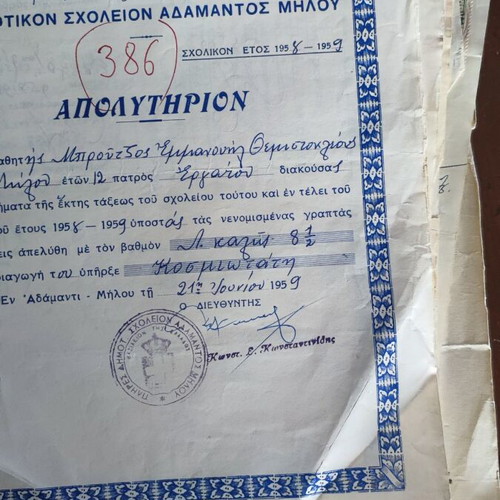 ΟΤΙΚΟΝ ΣΧΟΛΕΙΟΝ ΑΔΑΜΑΝΤΟΣ ΜΗΛΟΥ
386
ΣΧΟΛΙΚΟΝ ΕΤΟΣ 1958 — 1959
ΑΠΟΛΥΤΗΡΙΟΝ
αθητής Μπρούτζος Ἐμμανουήλ Θεμιστοκλέους
Μήλου ἐτῶν 12 πατρὸς Ἐργάτου διακούσας
ήματα τῆς ἕκτης τάξεως τοῦ σχολείου τούτου καὶ ἐν τέλει τοῦ
οῦ ἔτους 1958 - 1959 ὑποστὰς τὰς νενομισμένας γραπτὰς
εις ἀπελύθη μὲ τὸν βαθμὸν Λ. καλῶς 8 1/2
ιαγωγή του ὑπῆρξε Κοσμιωτάτη
Ἐν Ἀδάμαντι - Μήλου τῇ 21ῃ Ἰουνίου 1959
Ο ΔΙΕΥΘΥΝΤΗΣ
Κωνστ. Ε. Κωνσταντινίδης
ΠΛΗΡΕΣ ΔΗΜΟΤ. ΣΧΟΛΕΙΟΝ ΑΔΑΜΑΝΤΟΣ ΜΗΛΟΥ